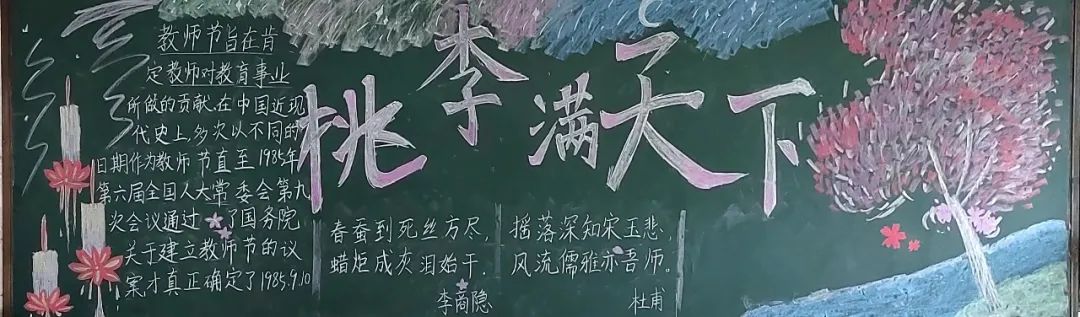 教师节旨在肯
定教师对教育事业
所做的贡献.在中国近现
代史上,多次以不同的
日期作为教师节直至1985年
第六届全国人大常委会第九
次会议通过了国务院
关于建立教师节的议
案才真正确定了1985.9.10
桃李满天下
春蚕到死丝方尽,
蜡炬成灰泪始干.
李商隐
摇落深知宋玉悲,
风流儒雅亦吾师。
杜甫